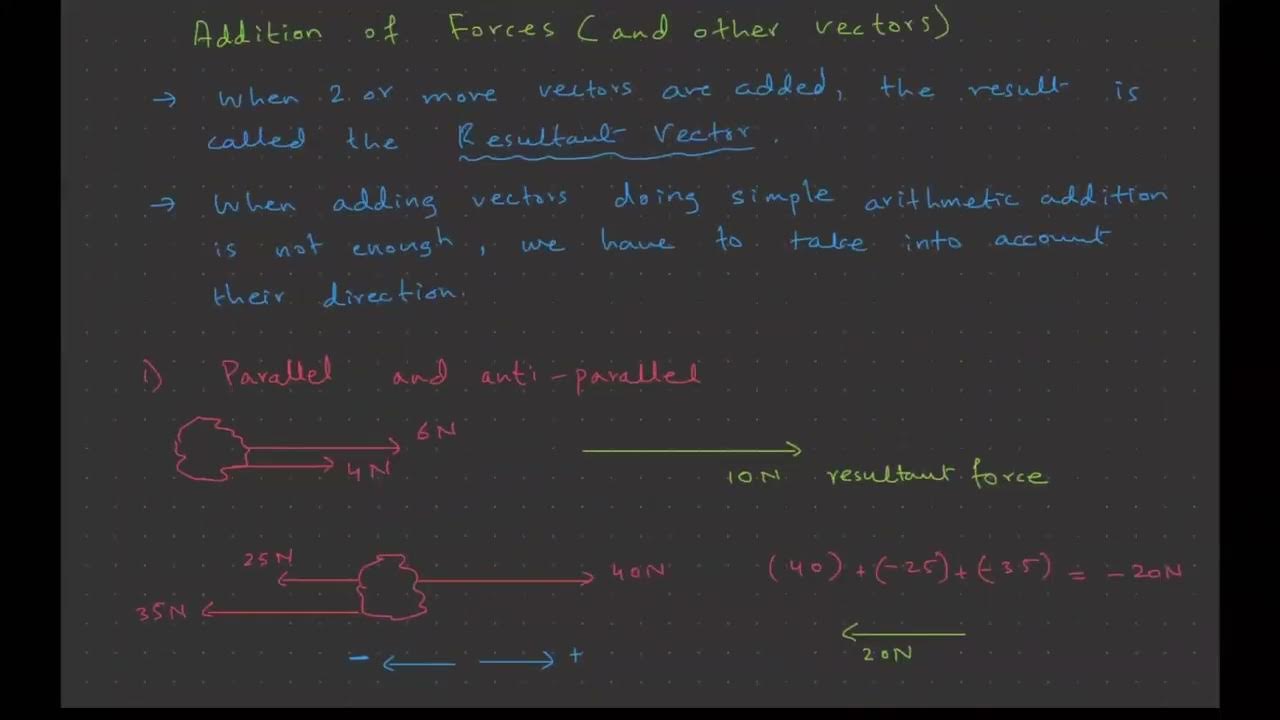 Addition of Forces (and other vectors)
→ When 2 or more vectors are added, the result is
called the Resultant Vector.
→ When adding vectors doing simple arithmetic addition
is not enough, we have to take into account
their direction.
i) Parallel and anti-parallel
6N
4N
10N resultant force
25N
40N
35N
(40) + (-25) + (-35) = -20N
- +
20N